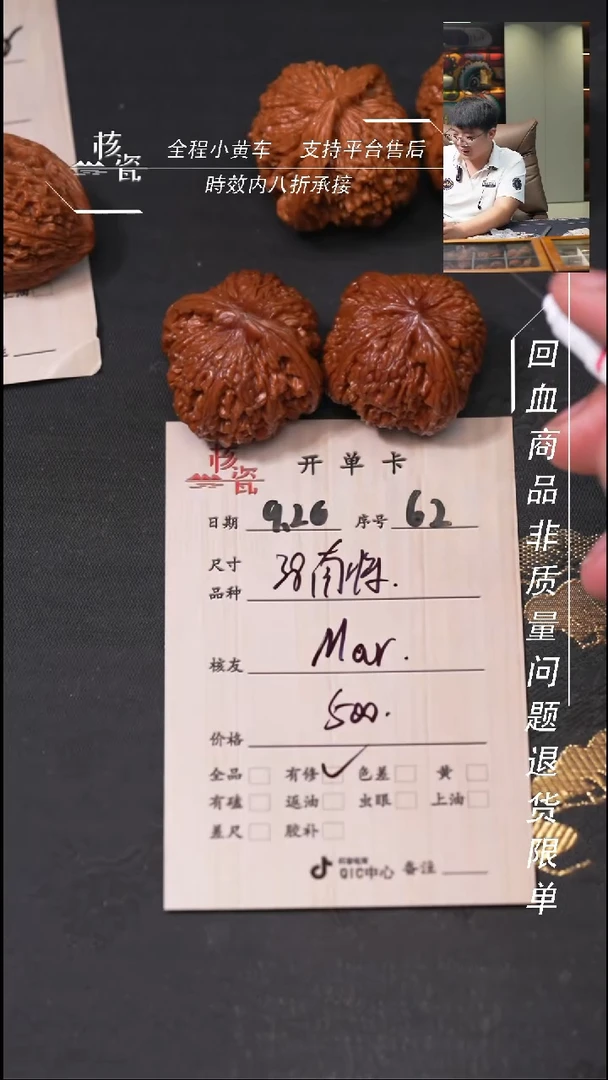 核瓷
全程小黄车 支持平台售后
時效内八折承接
回血商品非质量问题退货限单
核瓷
开单卡
日期 9.26 序号 62
尺寸
品种 38南将.
核友 Mar.
价格 500.
全品 有修 ✓ 色差 黄
有磕 返油 虫眼 上油
差尺 胶补
QIC中心 备注